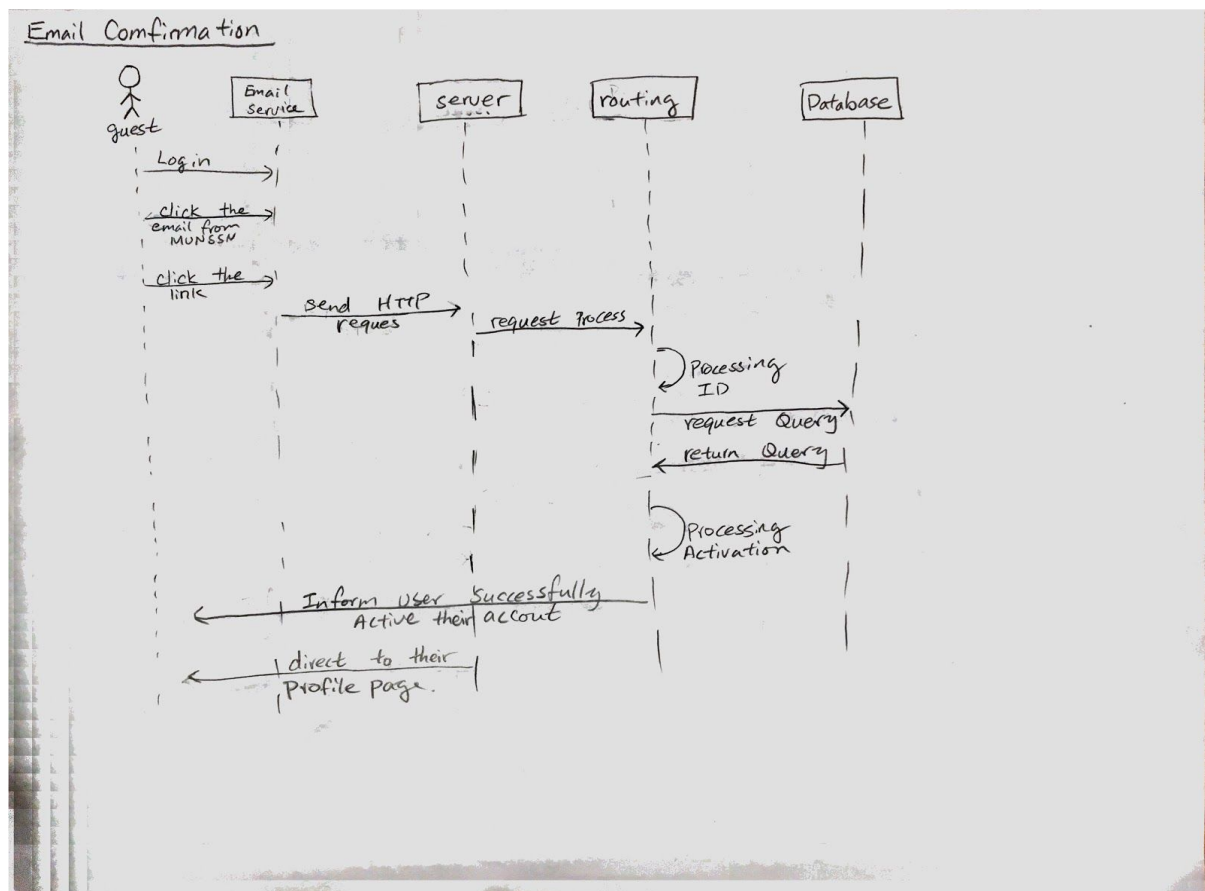 Email Comfirmation
guest
Email
Service
server
routing
Database
Login
click the
email from
MUNSSN
click the
link
send HTTP
reques
request Process
Processing
ID
request Query
return Query
Processing
Activation
Inform user Successfully
Active their accout
direct to their
Profile page.